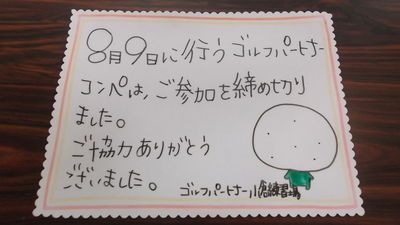 8月9日に行うゴルフパートナー
コンペは、ご参加を締め切り
ました。
ご協力ありがとう
ございました。
ゴルフパートナー小倉練習場